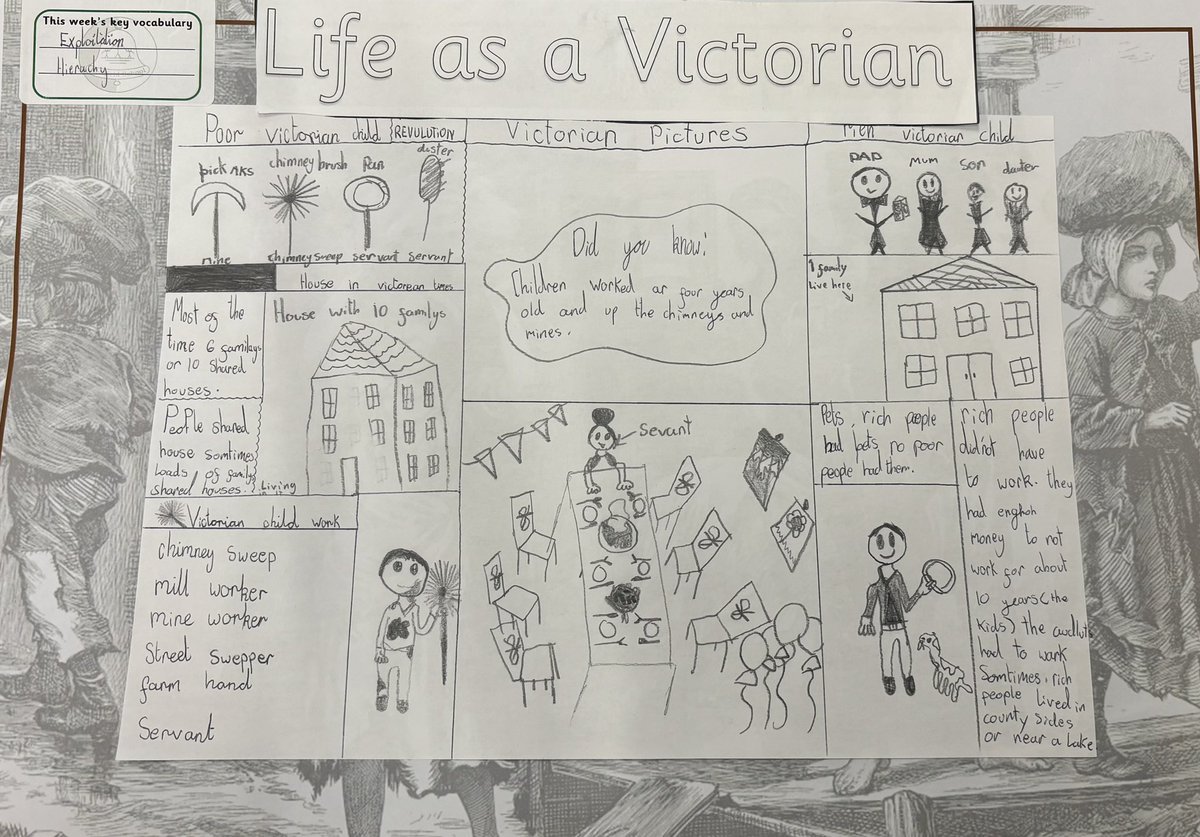 This week's key vocabulary
Exploitation
Hierachy
Life as a Victorian
Poor victorian child REVULUTION
pick AKS
chimney brush
Pan
duster
mine
chimney sweep
servant
servant
House in victorean times
Most of the
time 6 familays
or 10 shared
houses.
House with 10 familys
People shared
house somtimes
loads of family
shared houses.
Living
Victorian child work
chimney sweep
mill worker
mine worker
Street swepper
farm hand
Servant
Victorian Pictures
Did you know!
Children worked ar four years
old and up the chimneys and
mines.
Sevant
victorian child
DAD
MUM
Son
dauter
1 family
Live here
Pets, rich people
had pets no poor
people had them.
rich people
did not have
to work. they
had engheh
money to not
work for about
10 years (the
kids) the
had to wark
Somtimes. rich
people lived in
county sides
or near a Lake.